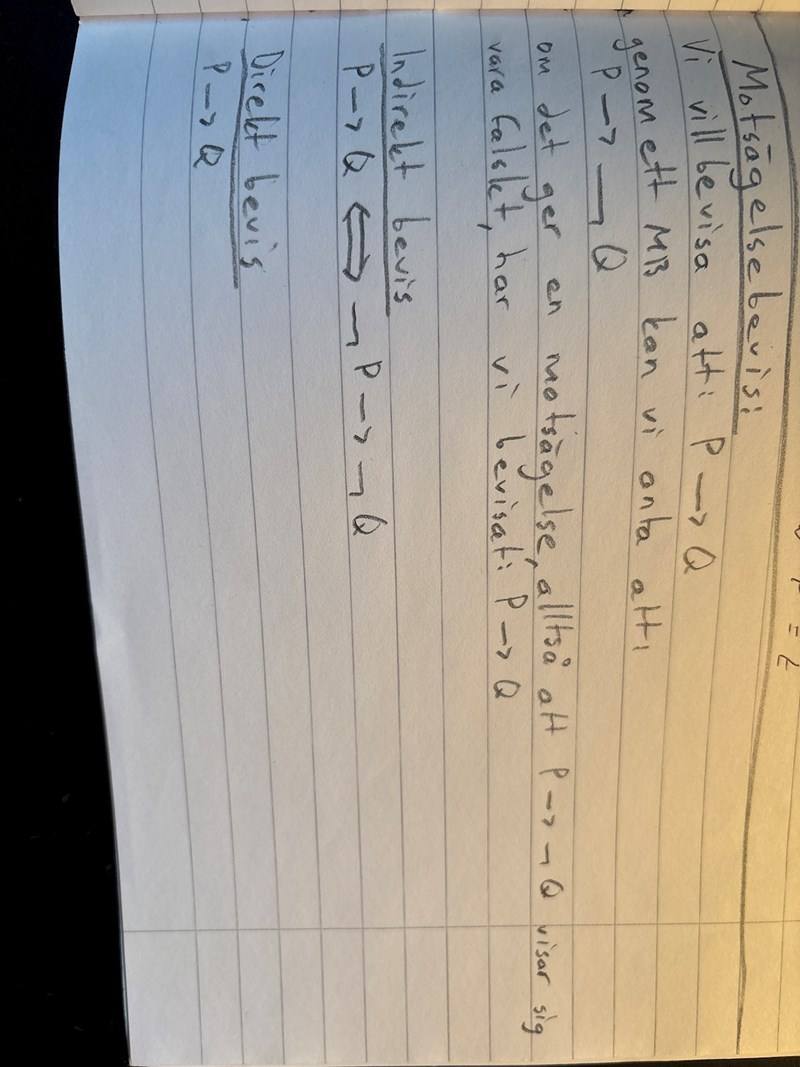 Motsägelsebevis:
Vi vill bevisa att: P -> Q
genom ett MB kan vi anta att:
P -> ¬Q
om det ger en motsägelse, alltså att P -> ¬Q visar sig
vara falskt, har vi bevisat: P -> Q
Indirekt bevis
P -> Q <=> ¬P -> ¬Q
Direkt bevis
P -> Q